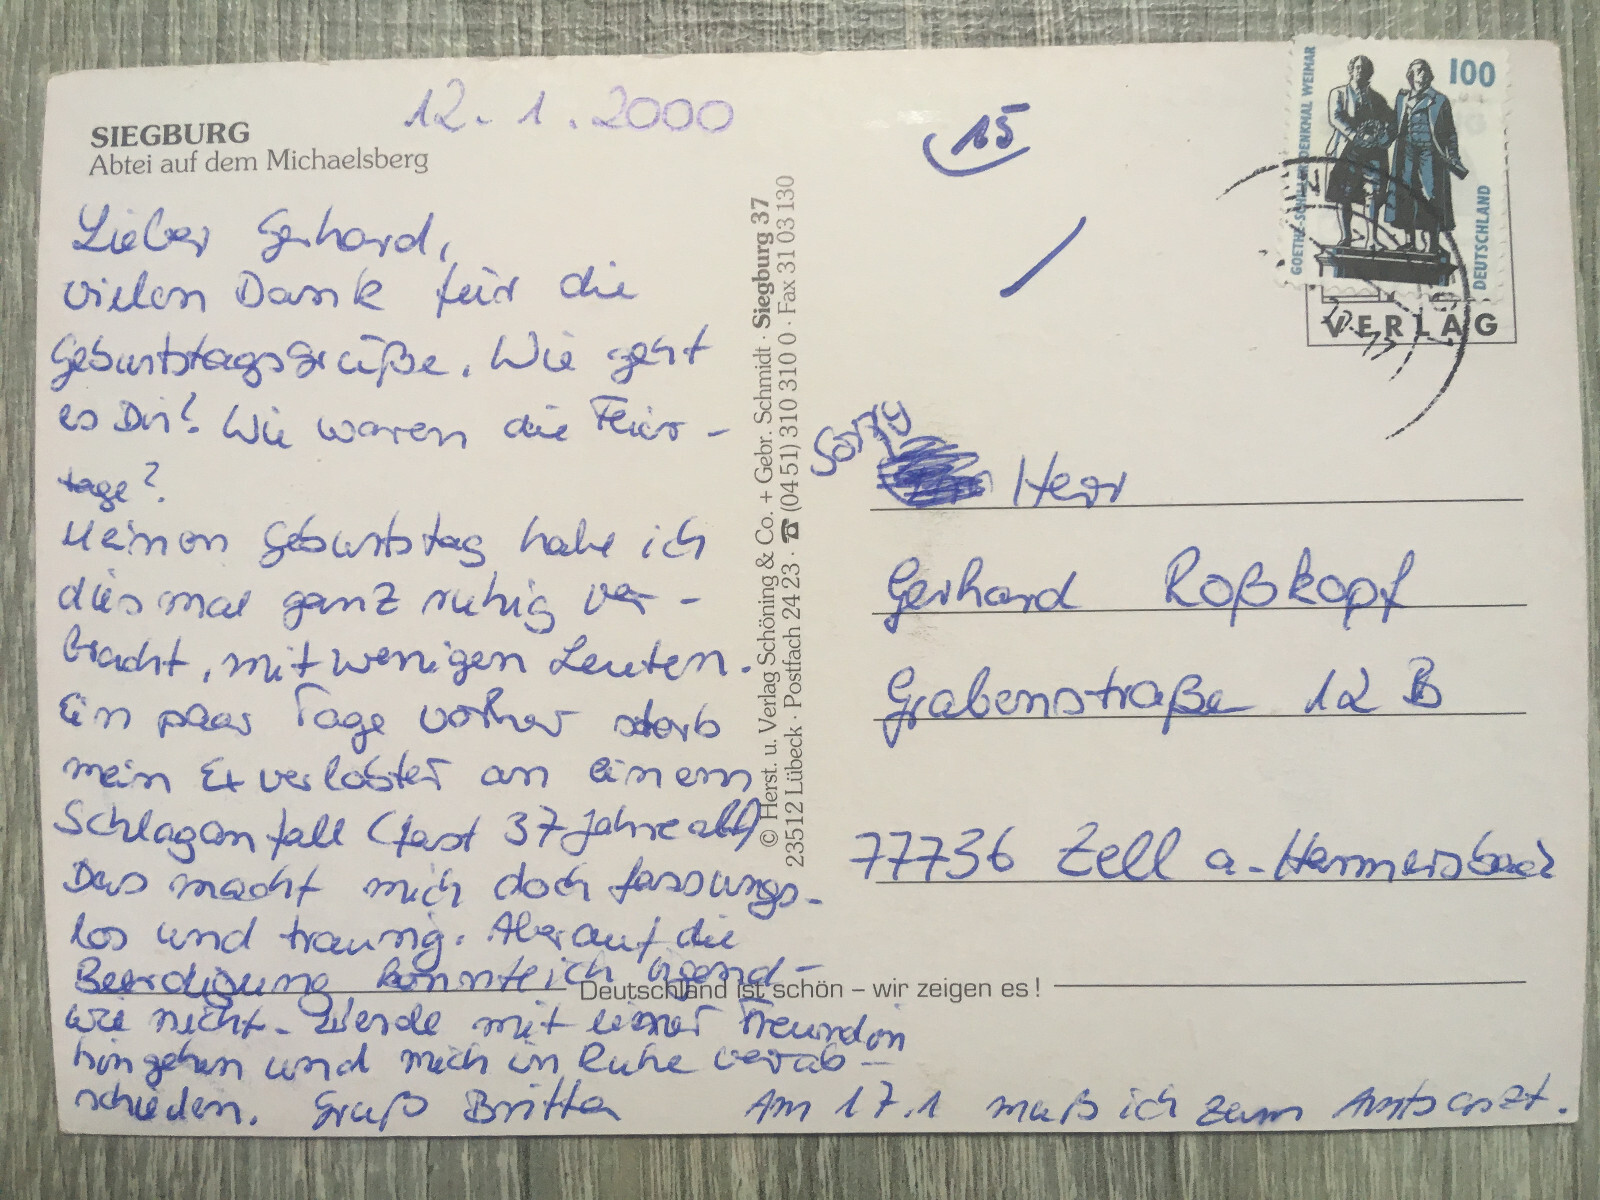 12. 1. 2000
SIEGBURG
Abtei auf dem Michaelsberg
Lieber Gerhard,
vielen Dank für die
Geburtstagsgrüße. Wie geht
es Dir? Wie waren die Feier-
tage?
Meinen Geburtstag habe ich
diesmal ganz ruhig ver-
bracht, mit wenigen Leuten.
Ein paar Tage vorher starb
mein Exverlobter an einem
Schlaganfall (fast 37 Jahre alt)
Das macht mich doch fassungs-
los und traurig. Aber auf die
Beerdigung konnte ich irgend-
wie nicht. Werde mit einer Freundin
hingehen und mich in Ruhe verab-
schieden. Gruß Britta
Am 17.1 muß ich zum Amtsarzt.
© Herst. u. Verlag Schöning & Co. + Gebr. Schmidt · Siegburg 37
23512 Lübeck · Postfach 24 23 · ☎ (04 51) 310 310 0 · Fax 31 03 130
15
GOETHE-SCHILLER-DENKMAL WEIMAR
100
DEUTSCHLAND
VERLAG
Sorry
Herr
Gerhard Roßkopf
Grabenstraße 12 B
77736 Zell a. Harmersbach
Deutschland ist schön – wir zeigen es !